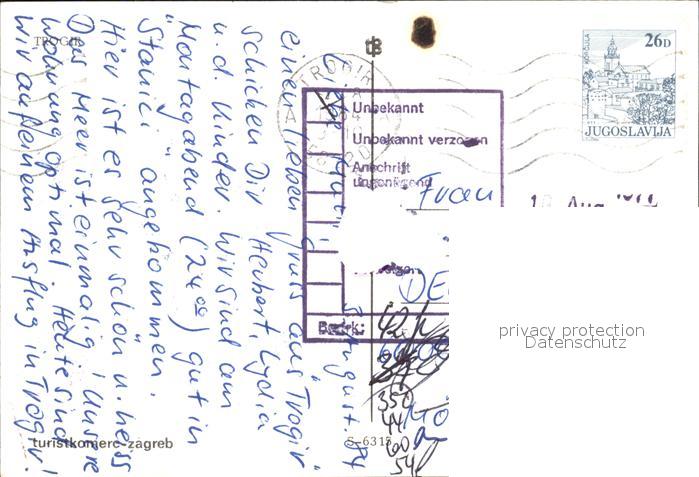 TROGIR
26D
JUGOSLAVIJA
TROGIR
Unbekannt
Unbekannt verzogen
Anschrift
ungenügend
Bezirk:
Frau
privacy protection
Datenschutz
August 84
einen lieben Gruß aus "Trogir"
schicken Dir Herbert, Lydia
u.d. Kinder. Wir sind am
Montagabend (24 00) gut in
"Stanici" angekommen.
Hier ist es sehr schön u. heiss
Das Meer ist einmalig! Unsere
Wohnung optimal. Heute sind
wir auf einem Ausflug in Trogir!
turistkomerc-zagreb
S-6315